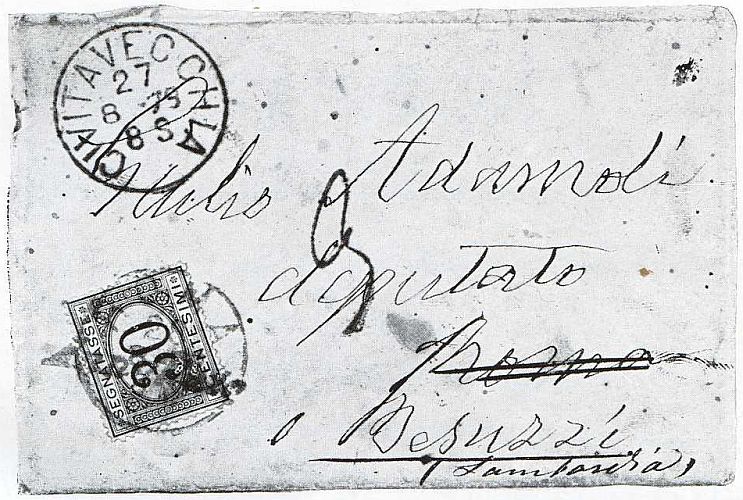 CIVITAVECCHIA
27
8 75
8 S
Giulio Adamoli
deputato
Roma
Besuzzi
(Lombardia)
SEGNATASSE
30
CENTESIMI